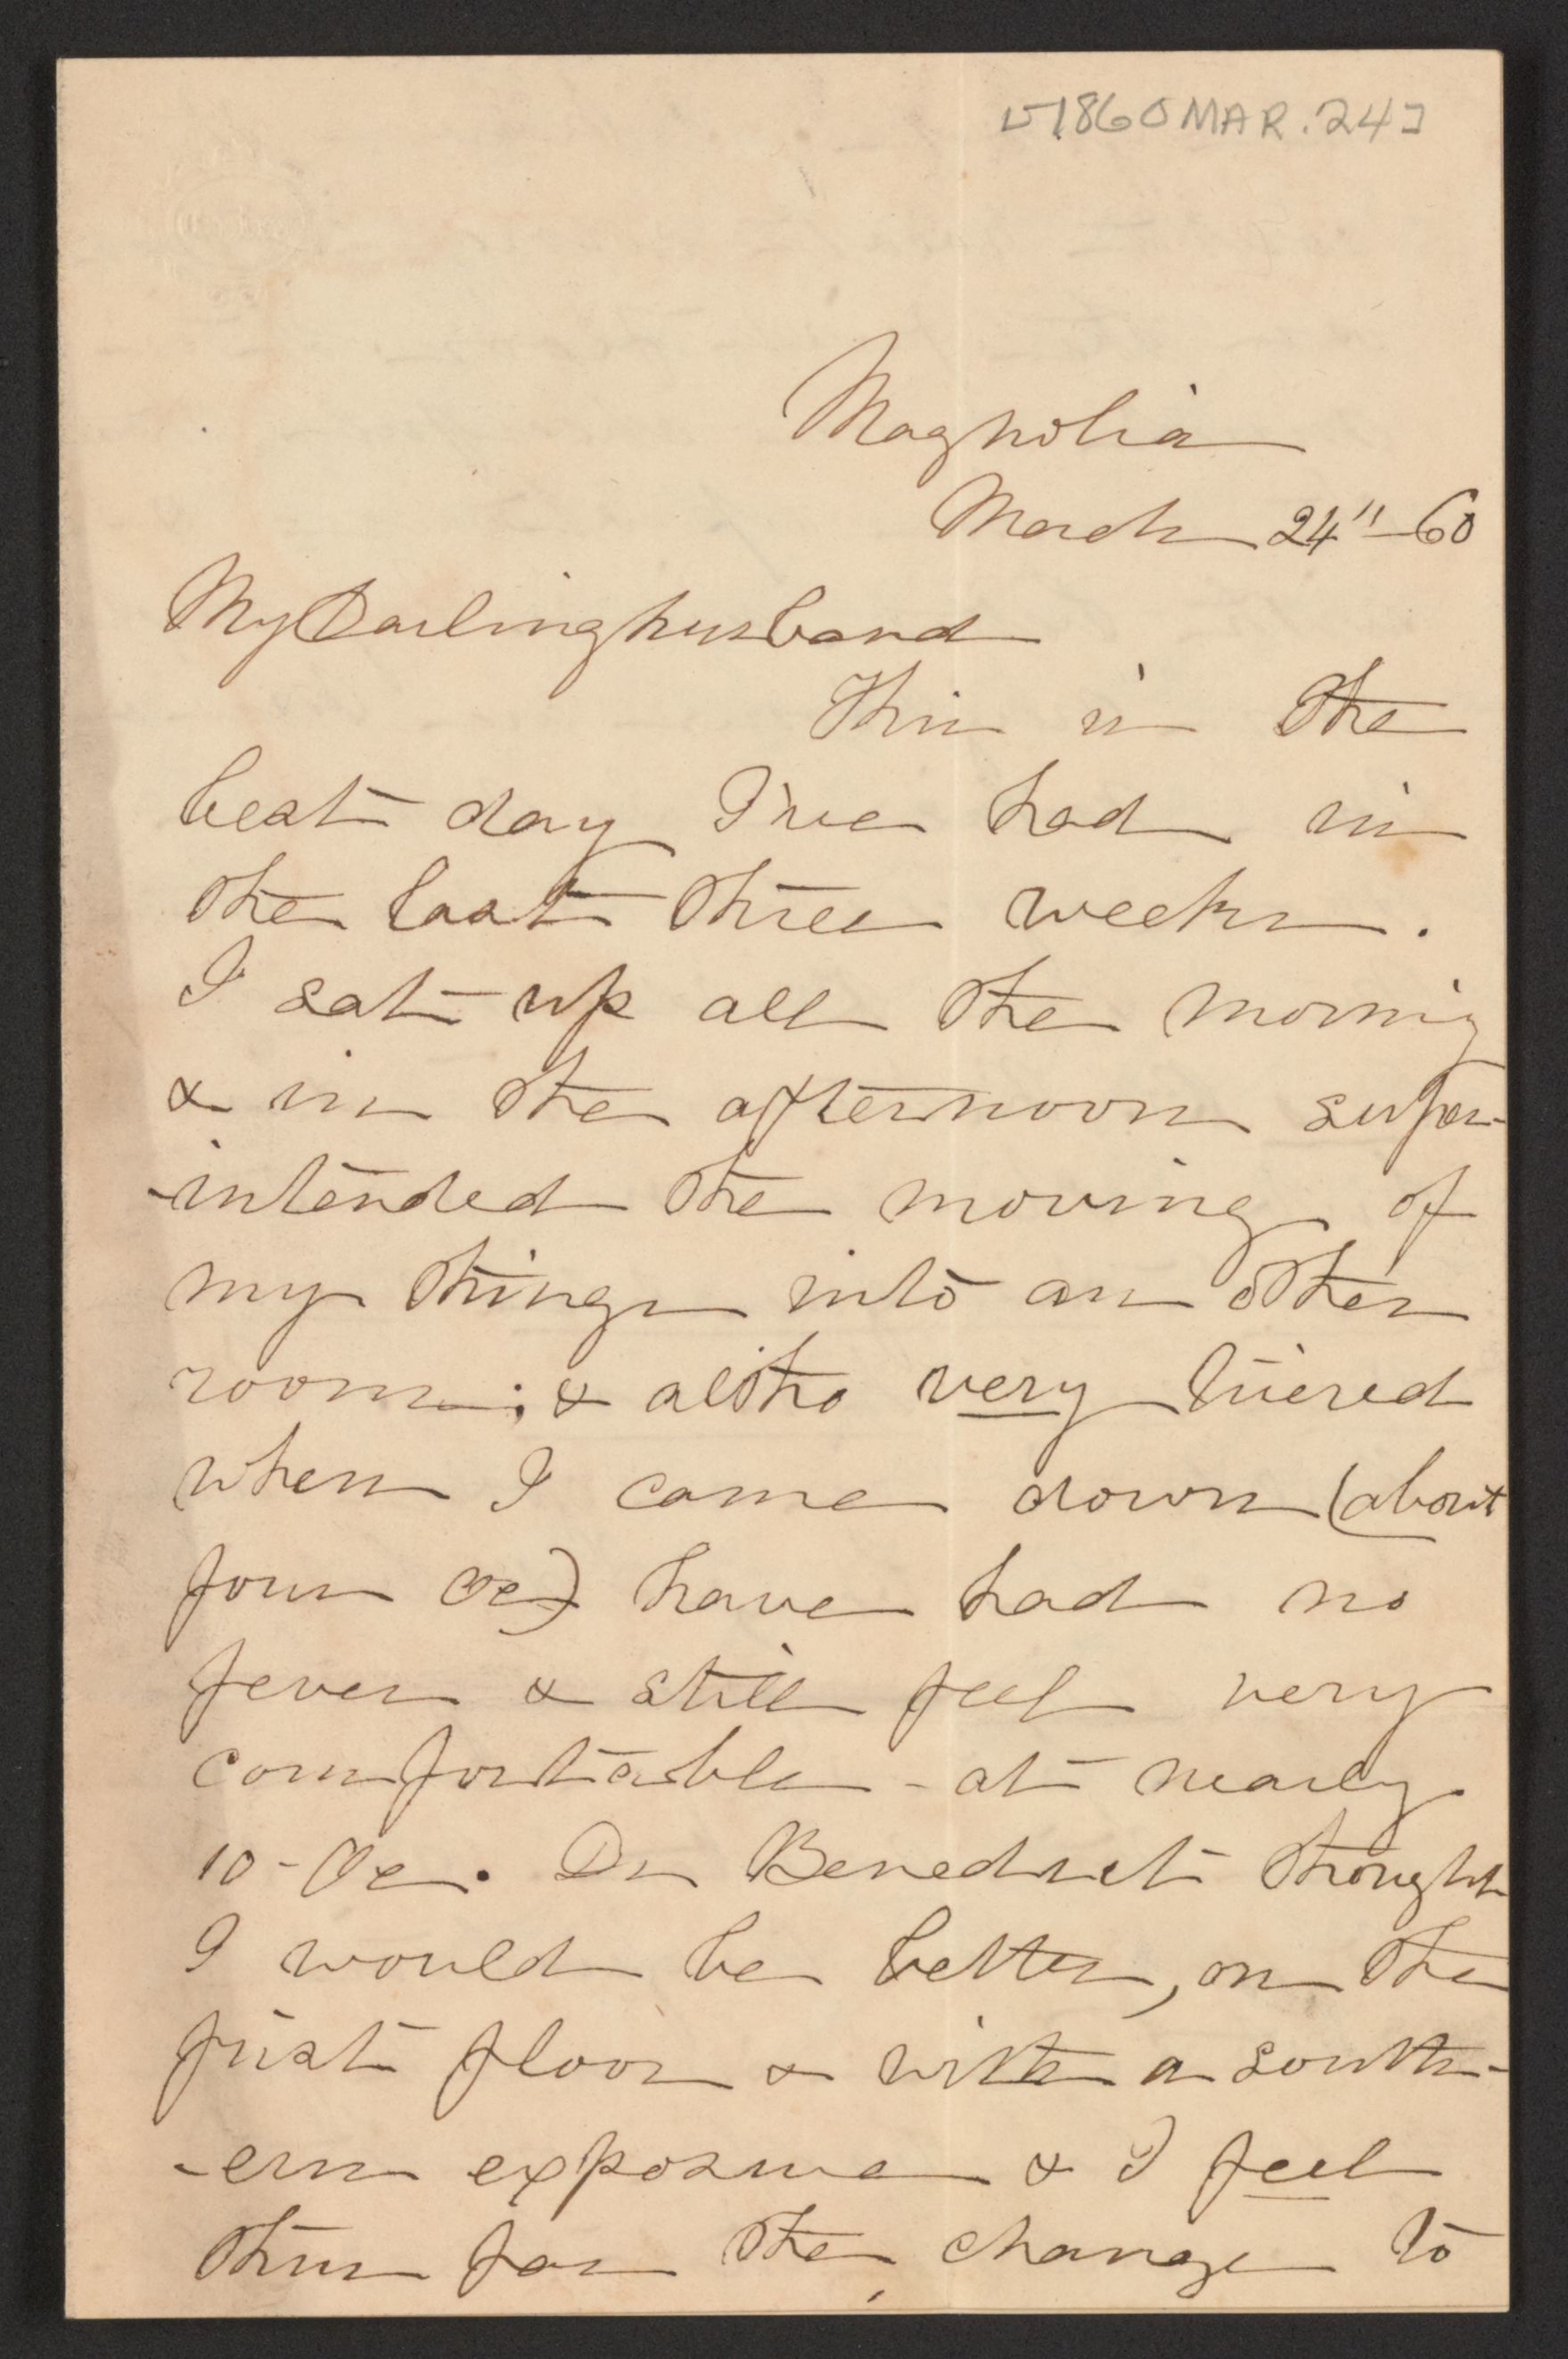 [1860 MAR. 24]
Magnolia
March 24" - 60
My Darling husband
This is the
best day I've had in
the last three weeks.
I sat up all the morning
& in the afternoon super-
-intended the moving of
my things into an other
room; & altho very tiered
when I came down (about
four oc) have had no
fever & still feel very
comfortable - at nearly
10-Oc. Dr Benedict thought
I would be better, on the
first floor & with a south-
-ern exposure & I feel
thus far the change to